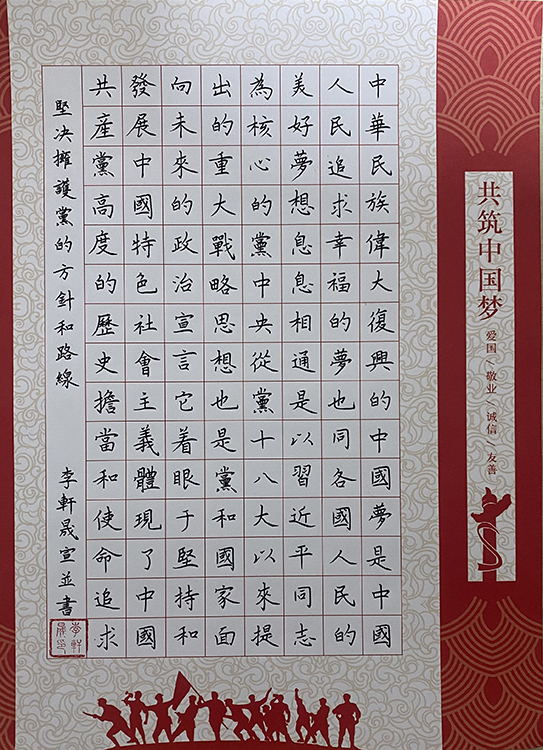 共筑中国梦
爱国、敬业、诚信、友善
中華民族偉大復興的中國夢是中國
人民追求幸福的夢也同各國人民的
美好夢想息息相通是以習近平同志
為核心的黨中央從黨十八大以來提
出的重大戰略思想也是黨和國家面
向未來的政治宣言它着眼于堅持和
發展中國特色社會主義體現了中國
共產黨高度的歷史擔當和使命追求
堅决擁護黨的方針和路線 李軒晟宣並書
李軒晟印